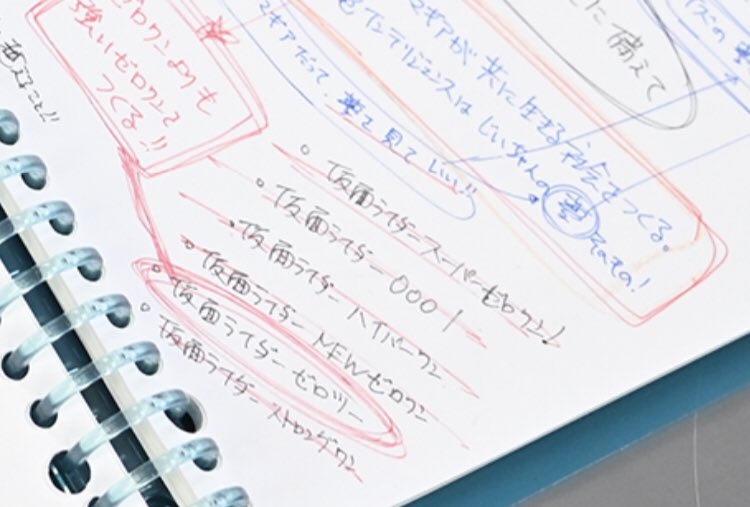 ゼロワンよりも
強いゼロワンを
つくる!!
えること!!
に備えて
マギアが共に生きる社会をつくる。
インテリジェンスはじいちゃんの夢そのもの!
マギアだって、夢を見ていい!!
。仮面ライダースーパーゼロワン!
。仮面ライダー0001
・仮面ライダーハイパーワン
。仮面ライダーNEWゼロワン
。仮面ライダーゼロツー
。仮面ライダーストロングワン